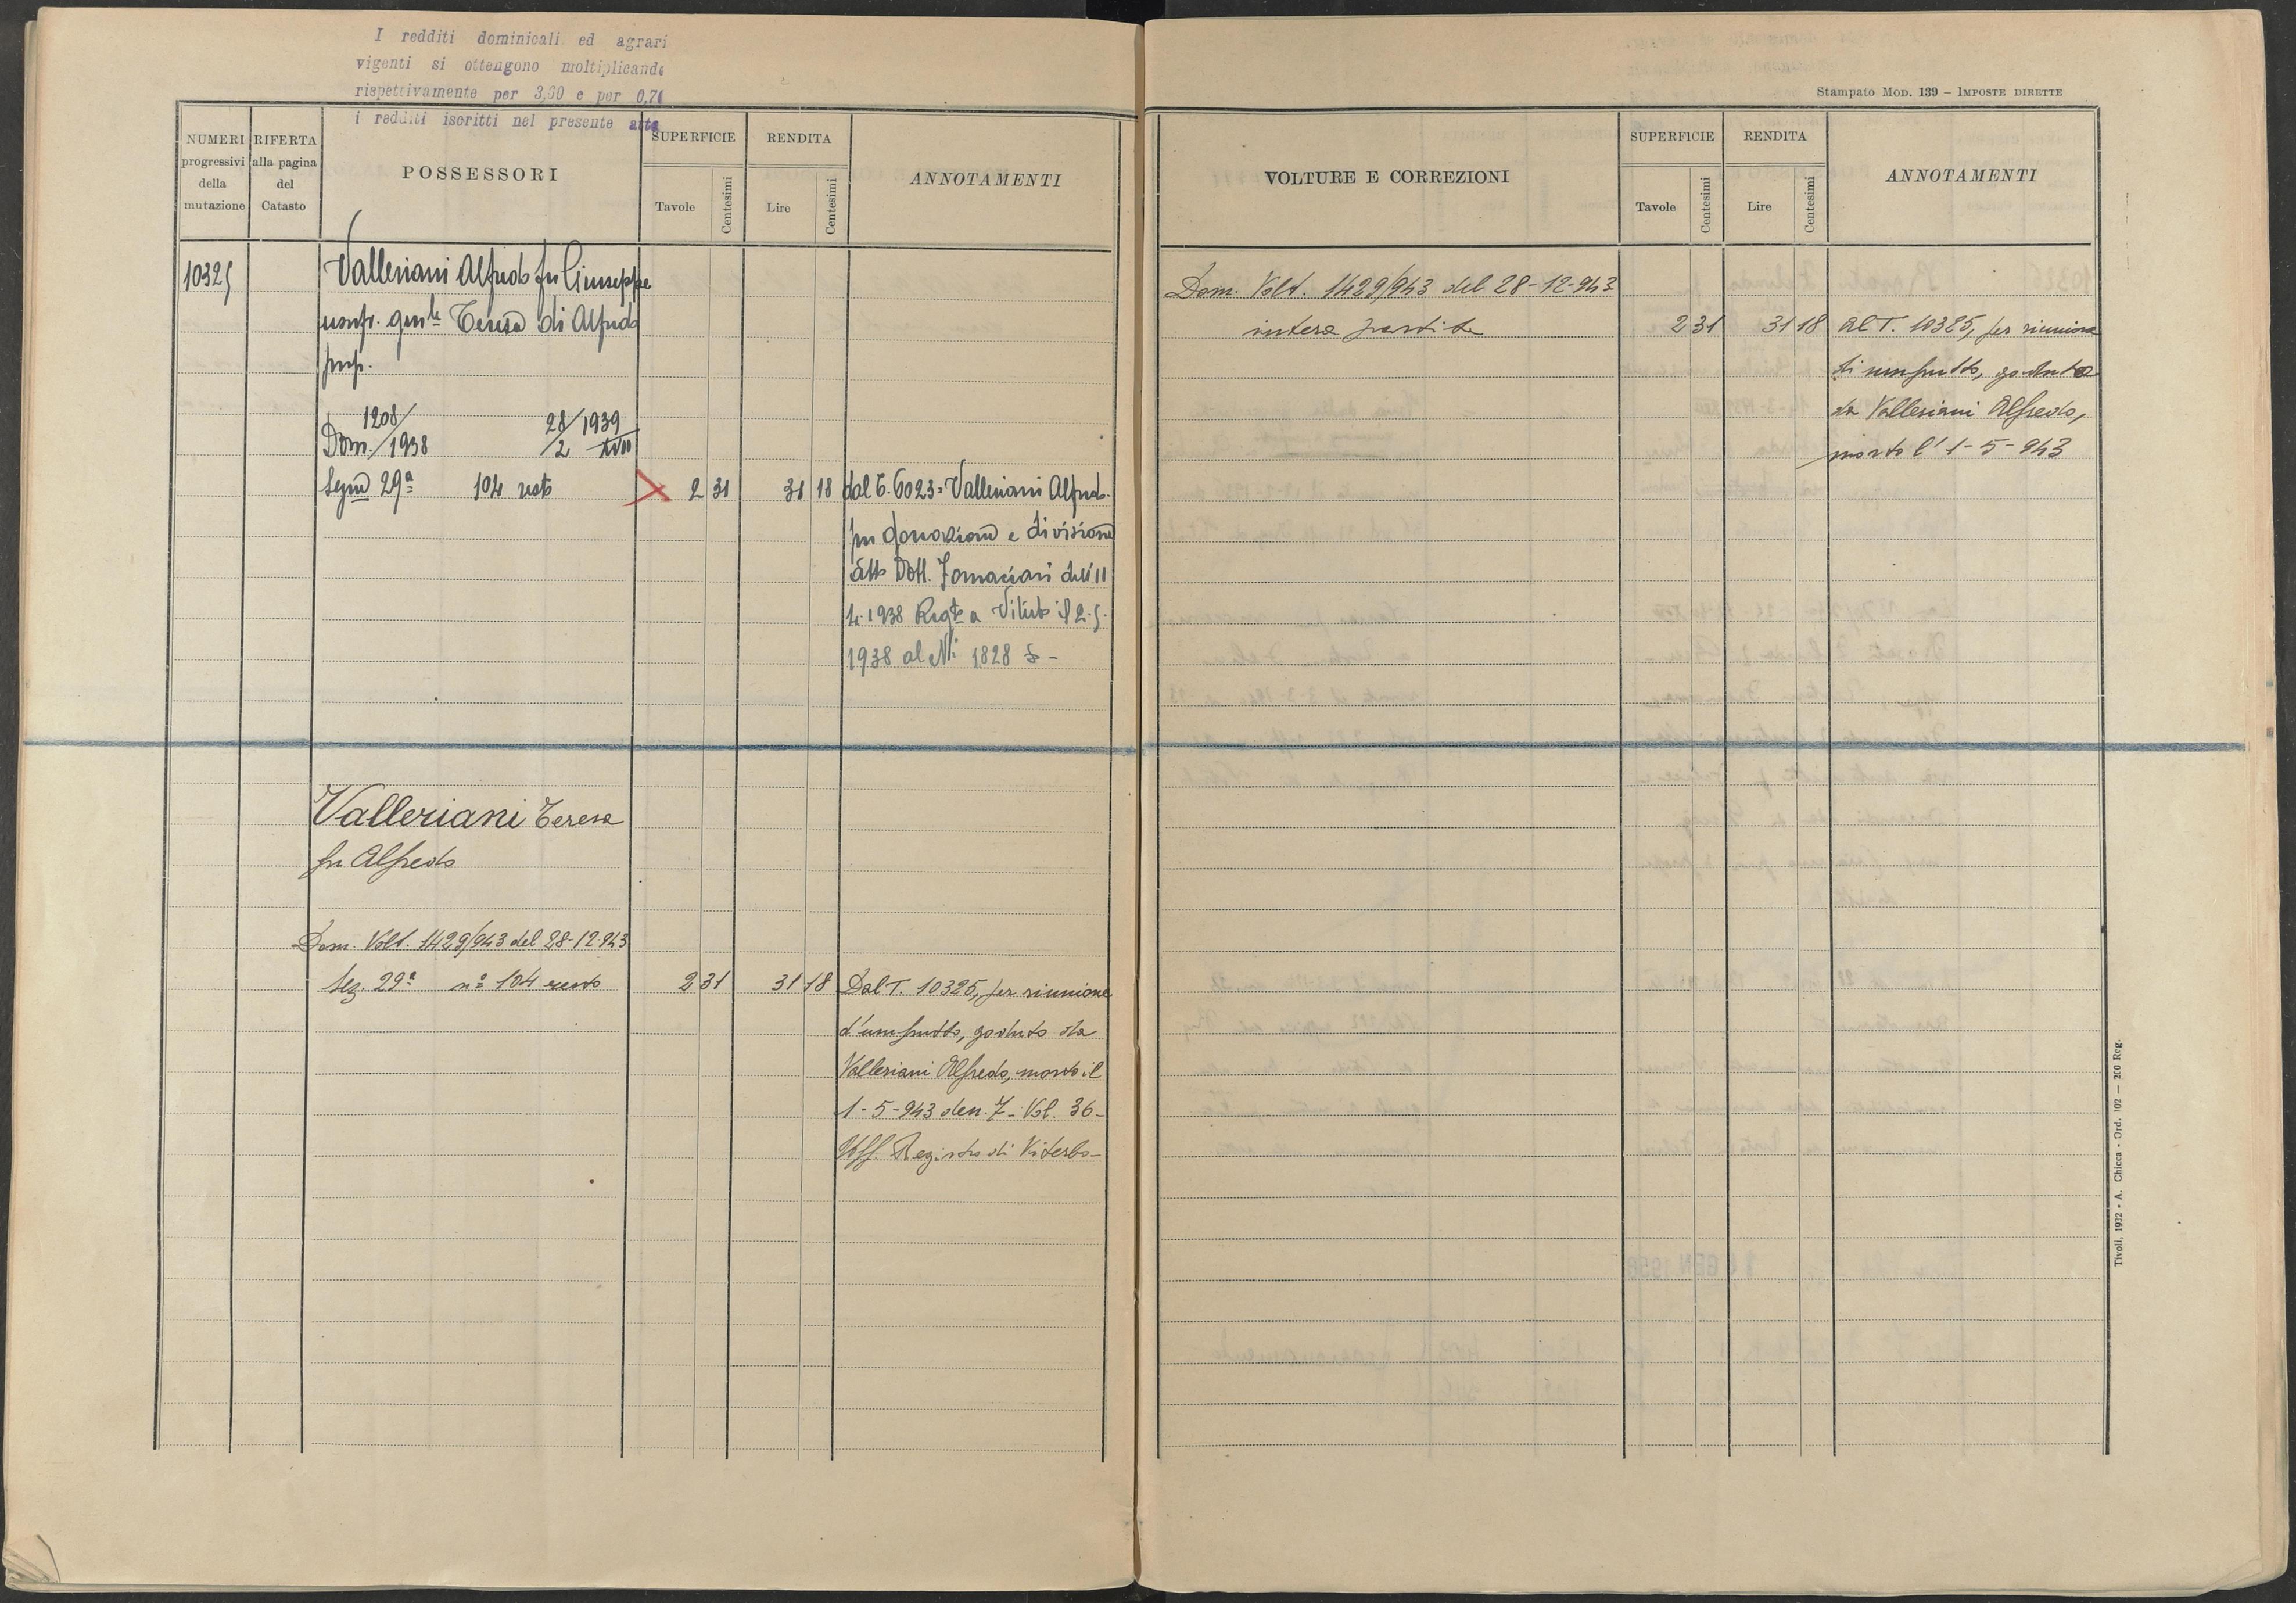 I redditi dominicali ed agrari
vigenti si ottengono moltiplicando
rispettivamente per 3,60 e per 0,76
i redditi iscritti nel presente atto
NUMERI
progressivi
della
mutazione
RIFERTA
alla pagina
del
Catasto
POSSESSORI
SUPERFICIE
Tavole
Centesimi
RENDITA
Lire
Centesimi
ANNOTAMENTI
10325
Valleriani Alfredo fu Giuseppe
usufr. gen.le Teresa di Alfredo
prop.
1208/ 28/1939
Dom./1938 /2 XVII
Sezne 29ª 104 resto X 2 31 31 18 dal T. 6023= Valleriani Alfredo.
per donazione e divisione
atto Dott. Fornaciari dell'11
4.1938 Regto a Viterbo il 2.5.
1938 al N. 1828 -
Valleriani Teresa
fu Alfredo
Dom. Volt. 1429/943 del 28-12-943
Sez. 29ª nº 104 resto 2 31 31 18 Dal T. 10325, per riunione
d'usufrutto, goduto da
Valleriani Alfredo, morto il
1-5-943 den. 7- Vol. 36-
Uff. Registro di Viterbo-
Stampato Mod. 139 – Imposte dirette
VOLTURE E CORREZIONI
SUPERFICIE
Tavole
Centesimi
RENDITA
Lire
Centesimi
ANNOTAMENTI
Dom. Volt. 1429/943 del 28-12-943
intera partita 2 31 31 18 Al T. 10325, per riunione
di usufrutto, goduto
da Valleriani Alfredo,
morto l'1-5-943
Tivoli, 1932 - A. Chicca - Ord. 102 — 200 Reg.